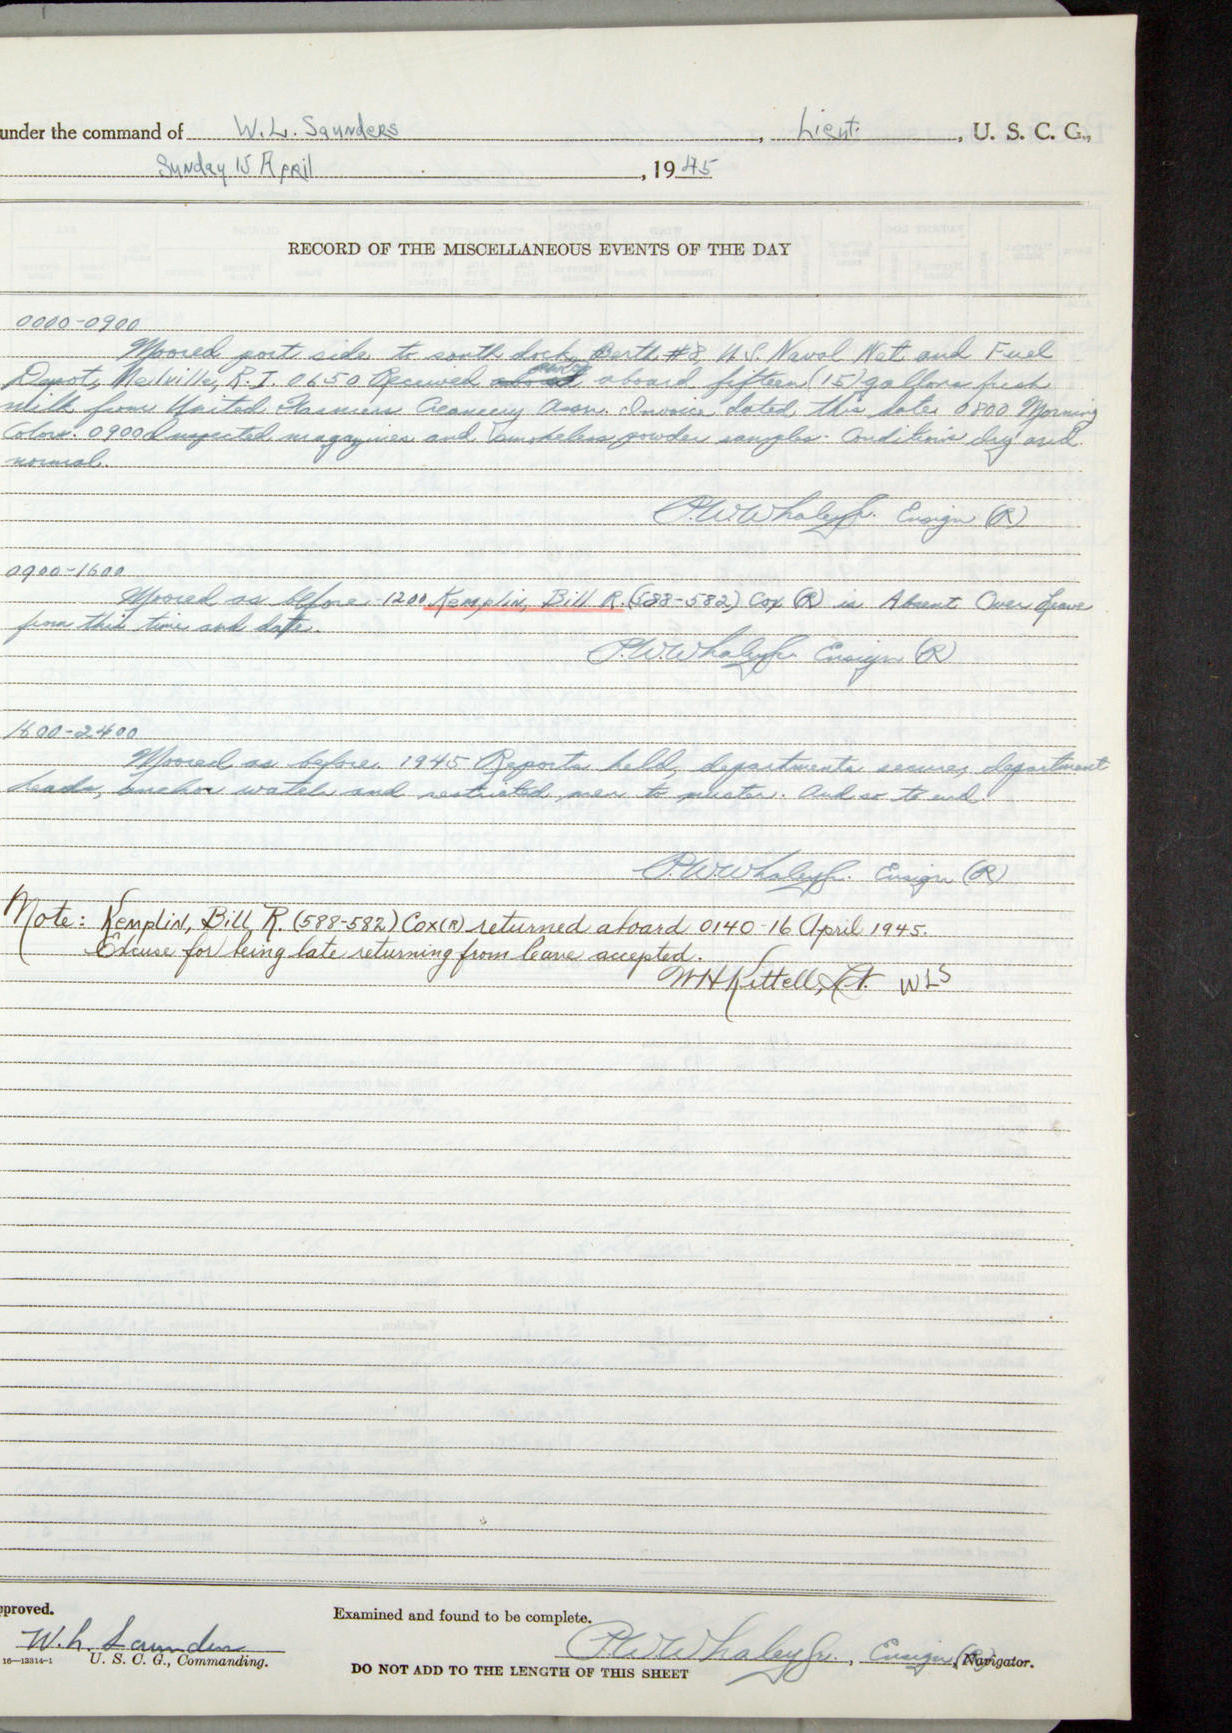 under the command of W. L. Saunders, Lieut., U. S. C. G.,
Sunday 15 April, 1945
RECORD OF THE MISCELLANEOUS EVENTS OF THE DAY
0000-0900
Moored port side to south dock, Berth #8, U.S. Naval Net and Fuel
Depot, Melville, R.I. 0650 Received aboard fifteen (15) gallons fresh
milk from United Farmers Creamery Assn. Invoice dated this date. 0800 Morning
Colors. 0900 Inspected magazines and smokeless powder samples. Conditions dry and
normal.
P.W. Whaley Jr. Ensign (R)
0900-1600
Moored as before. 1200 Kemplin, Bill R. (588-582) Cox (R) is Absent Over Leave
from this time and date.
P.W. Whaley Jr. Ensign (R)
1600-2400
Moored as before. 1945 Reports held, departments secure, department
heads, anchor watch and restricted men to muster. And so to end.
P.W. Whaley Jr. Ensign (R)
Note: Kemplin, Bill R. (588-582) Cox(R) returned aboard 0140-16 April 1945.
Excuse for being late returning from leave accepted.
W H Kittell, Lt. WLS
pproved.
Examined and found to be complete.
W. L. Saunders
U. S. C. G., Commanding.
P.W. Whaley Jr., Ensign (R), Navigator.
16—13314-1
DO NOT ADD TO THE LENGTH OF THIS SHEET